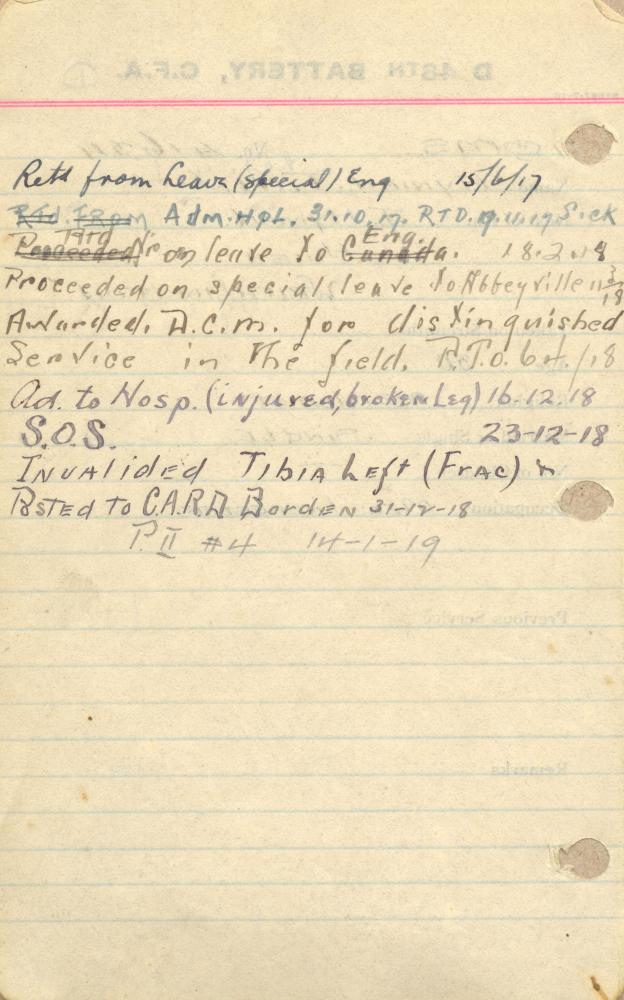 Retd from Leave (special) Eng 15/6/17
Rtd. From Adm. Hpl. 31.10.17. RTD. 9.11.17 Sick
Rtrd Eng.
Proceeded on leave to Canada. 18.2.18
Proceeded on special leave to Abbeyville 11/3/18
Awarded. D.C.M. for distinguished
Service in the field. R.T.O. 6.4./18
Ad. to Hosp. (injured, broken Leg) 16.12.18
S.O.S. 23-12-18
Invalided Tibia Left (Frac) &
Posted to C.A.R.D Borden 31-12-18
P. II #4 14-1-19